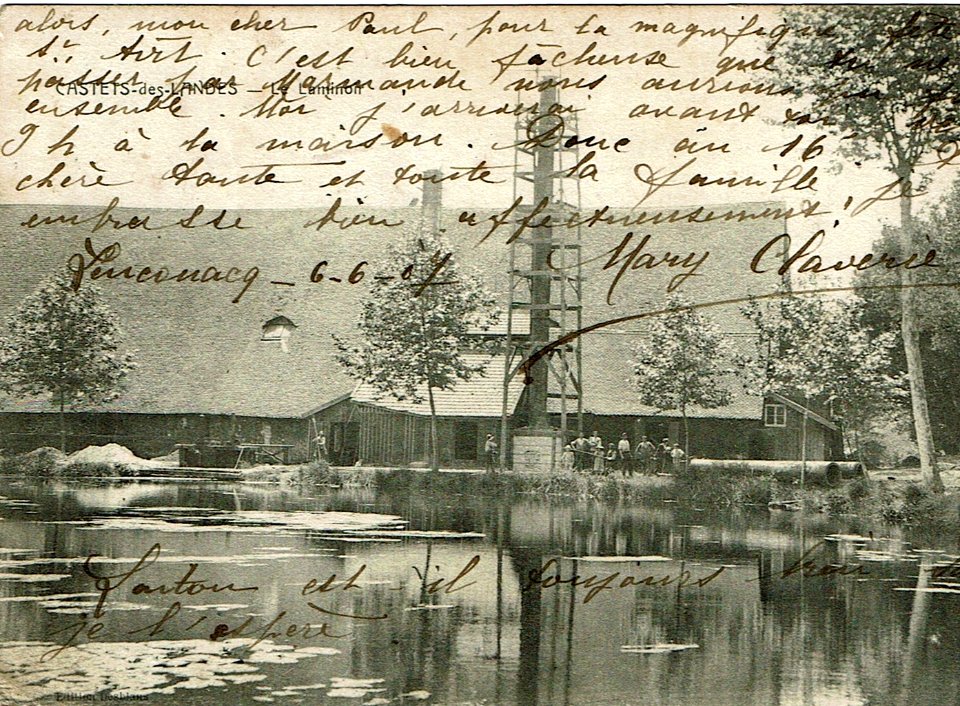 alors, mon cher Paul, pour la magnifique fête
St Art. C'est bien fâcheuse que tu ne
passes par Marmande nous aurions
ensemble. Moi j'arriverai avant
9 h à la maison. Donc au 16
chère tante et toute la famille, je
embrasse bien affectueusement,
CASTETS-des-LANDES — Le Laminoir
Mary Claverie
6-6-07
est-il toujours
je l'espère
Edition Desblans